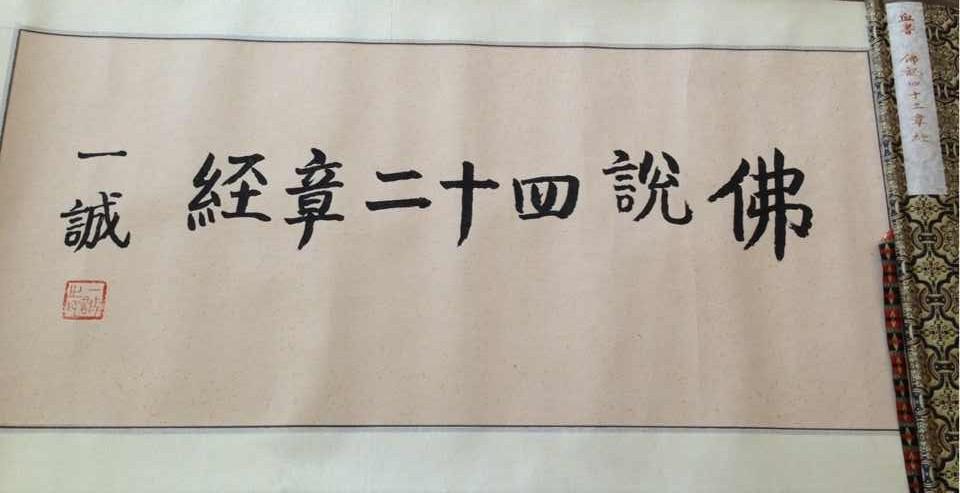 佛說四十二章経
一誠
血書 佛說四十二章経